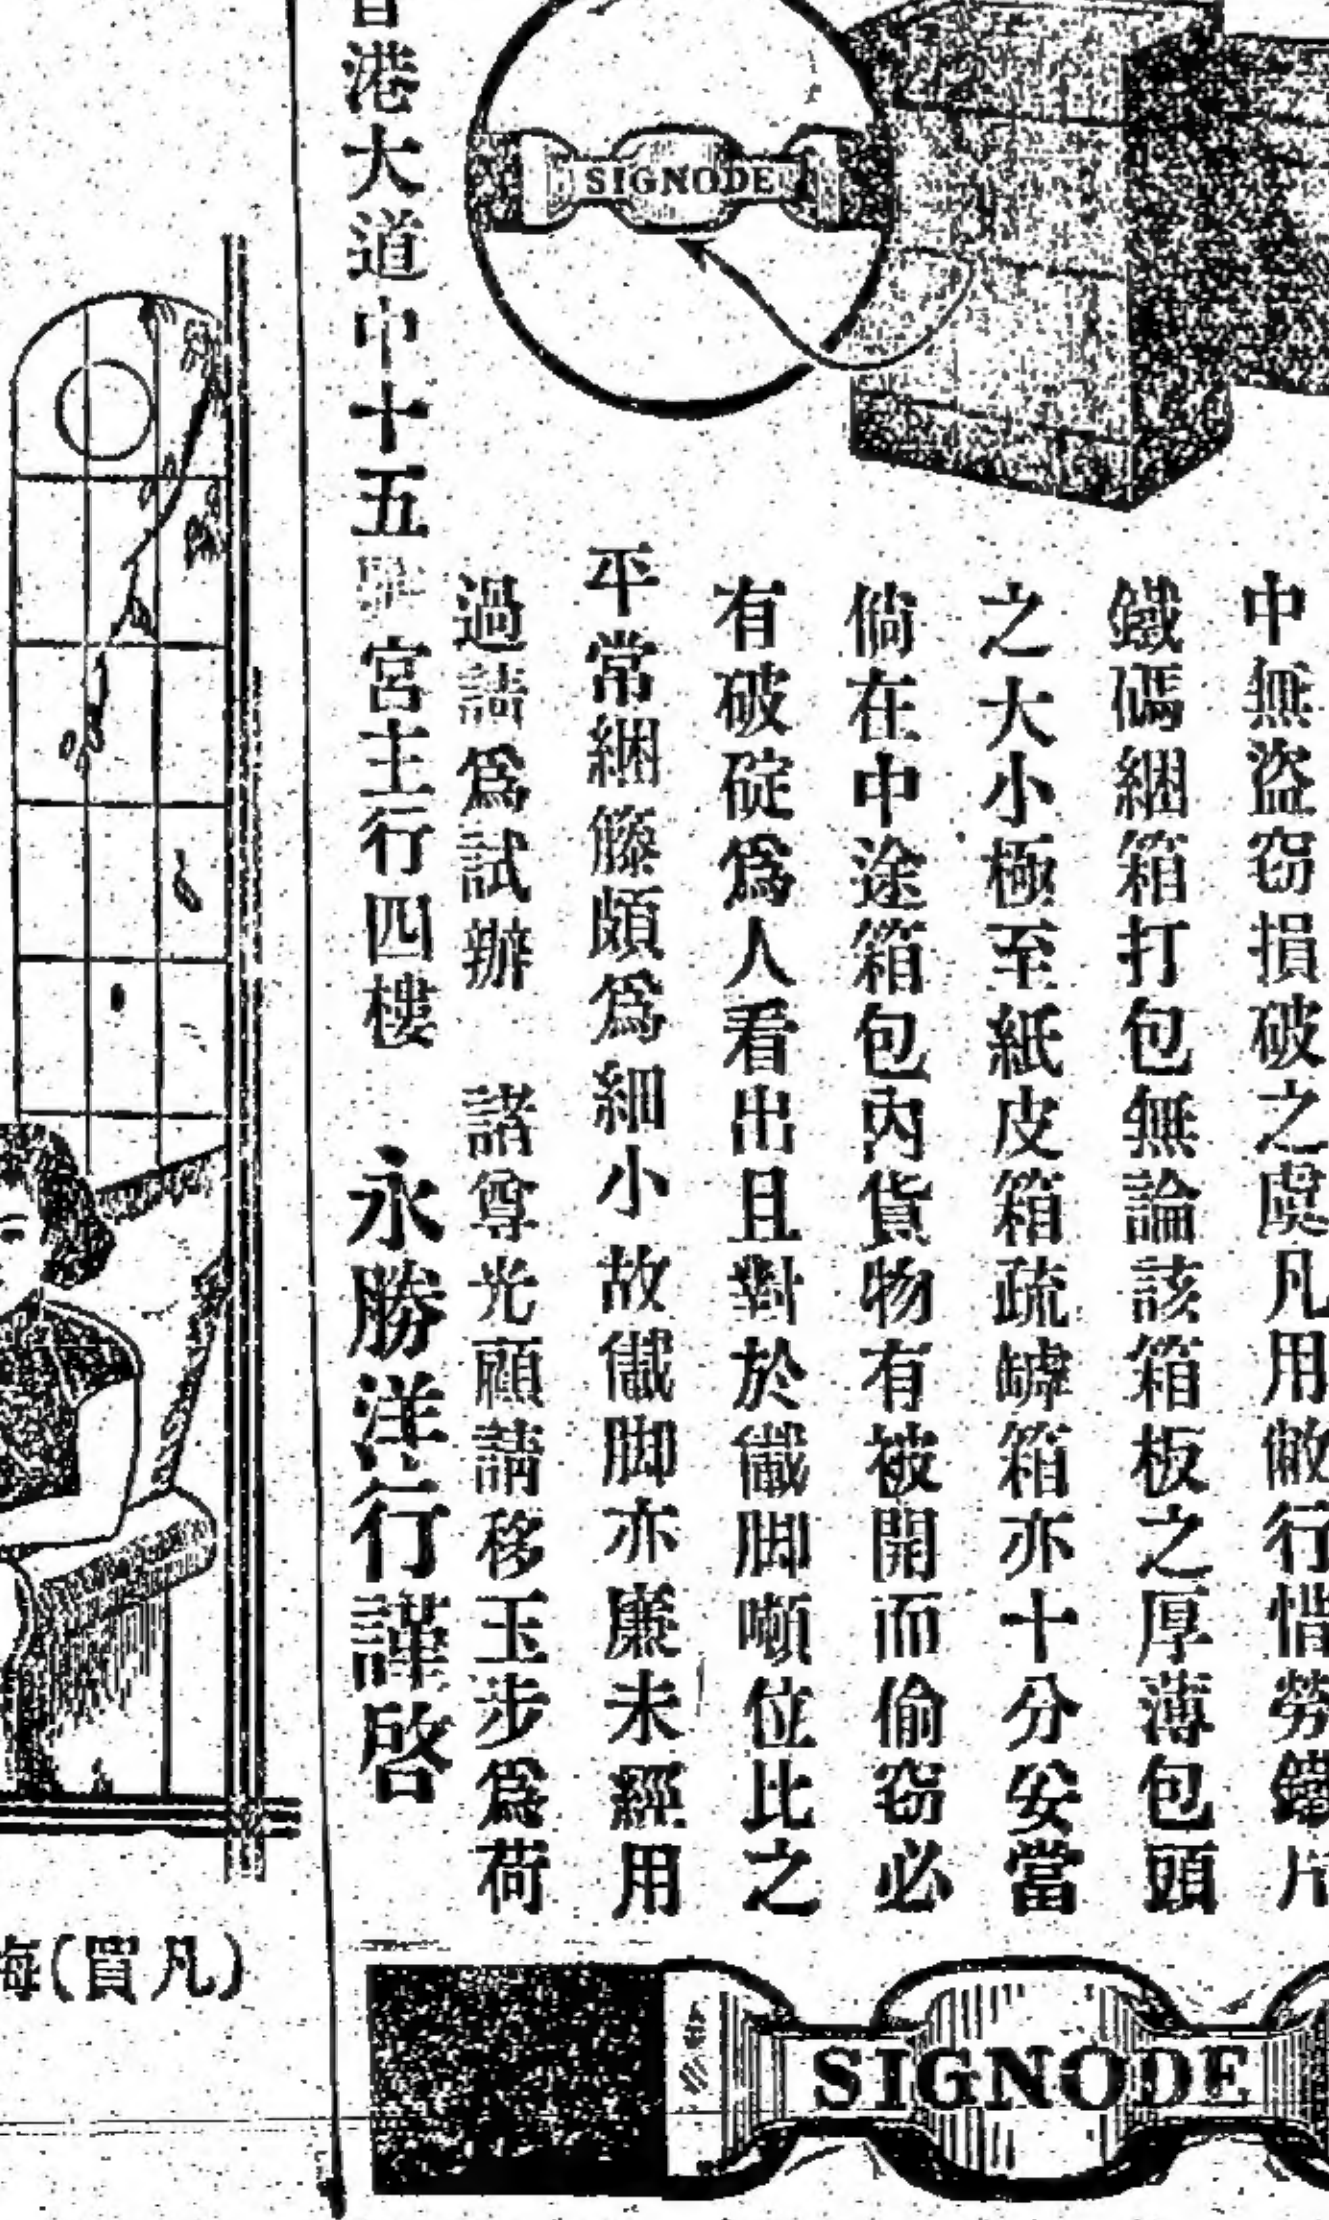 SIGNODE
中無盜窃損破之虞凡用敝行惜勞鐵片
鐵碼綑箱打包無論該箱板之厚薄包頭
之大小極至紙皮箱疏罅箱亦十分妥當
倘在中途箱包內貨物有被開而偷窃必
有破碇爲人看出且對於儎脚噸位比之
平常綑籐頗爲細小故儎脚亦廉未經用
過請爲試辦 諸尊光顧請移玉步爲荷
港大道中十五 宮主行四樓 永勝洋行謹啓
SIGNODE
(凡買